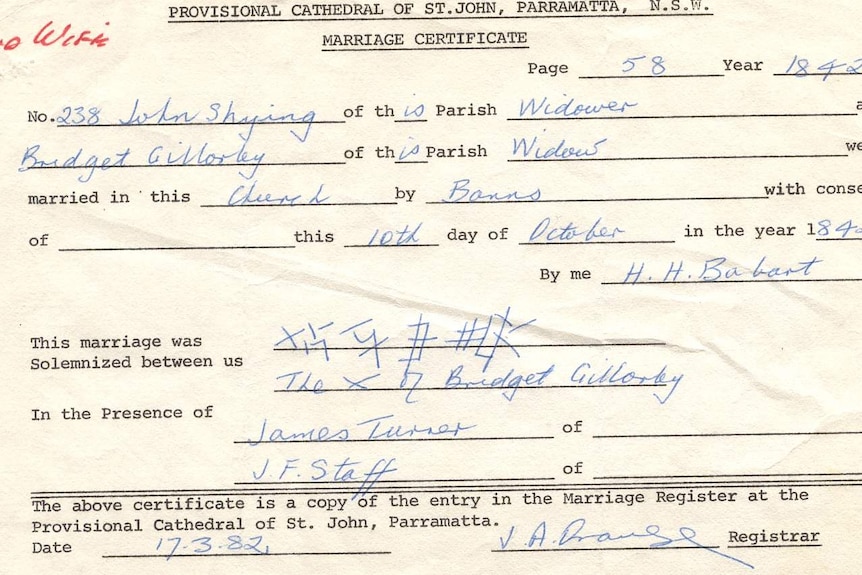 PROVISIONAL CATHEDRAL OF ST.JOHN, PARRAMATTA, N.S.W.
WIFE
MARRIAGE CERTIFICATE
Page 58 Year 1842
No. 238 John Shying of this Parish Widower a
Bridget Gillorby of this Parish Widow we
married in this Church by Banns with conse
of this 10th day of October in the year 1842
By me H. H. Bobart
This marriage was
Solemnized between us
The X of Bridget Gillorby
In the Presence of
James Turner of
J.F. Staff of
The above certificate is a copy of the entry in the Marriage Register at the
Provisional Cathedral of St. John, Parramatta.
Date 17.3.82. J. A. Registrar